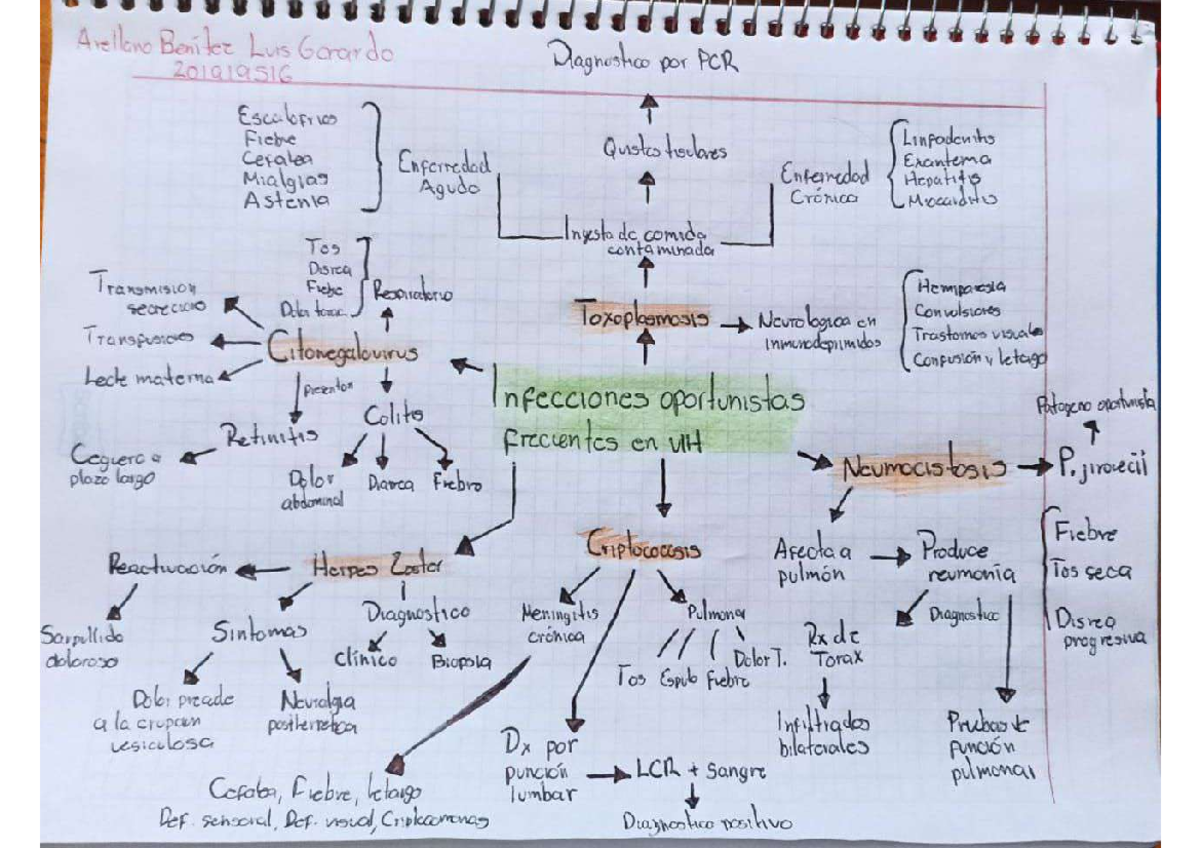 Arellano Benítez Luis Gerardo
201919516
Diagnostico por PCR
Escalofrios
Fiebre
Cefalea
Mialgias
Astenia
Enfermedad
Aguda
Quistes tisulares
Enfermedad
Crónica
Linfadenitis
Exantema
Hepatitis
Miocarditis
Ingesta de comida
contaminada
Tos
Disnea
Fiebre
Dolor torac.
Respiratorio
Transmision
secrecion
Transfusiones
Leche materna
Citomegalovirus
Presentan
Retinitis
Ceguera a
plazo largo
Colitis
Dolor
abdominal
Diarrea
Fiebre
Toxoplasmosis
Neurologica en
inmunodeprimidos
Hemiparesia
Convulsiones
Trastornos visuales
Confusión y letargo
Infecciones oportunistas
frecuentes en VIH
Neumocistosis
P. jirovecii
Patogeno oportunista
Afecta a
pulmón
Produce
neumonia
Fiebre
Tos seca
Disnea
progresiva
Diagnostico
Rx de
Torax
Infiltrados
bilaterales
Pruebas de
punción
pulmonar
Criptococosis
Meningitis
crónica
Pulmonar
Tos Esputo Fiebre
Dolor T.
Dx por
punción
lumbar
LCR + Sangre
Diagnostico positivo
Herpes Zoster
Reactivación
Sarpullido
doloroso
Síntomas
Dolor precede
a la erupcion
vesiculosa
Neuralgia
postherpetica
Diagnostico
Clínico
Biopsia
Cefalea, Fiebre, letargo
Def. sensorial, Def. visual,